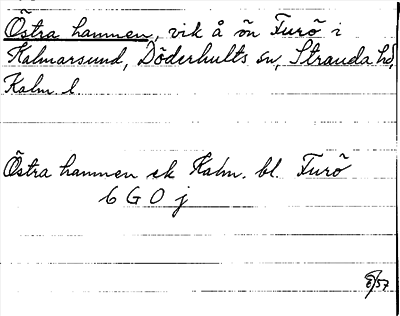 Östra hamnen, vik å ön Furö i
Kalmarsund, Döderhults sn, Stranda hd,
Kalm. l.
Östra hamnen ek Kalm. bl. Furö
6 G 0 j
/57